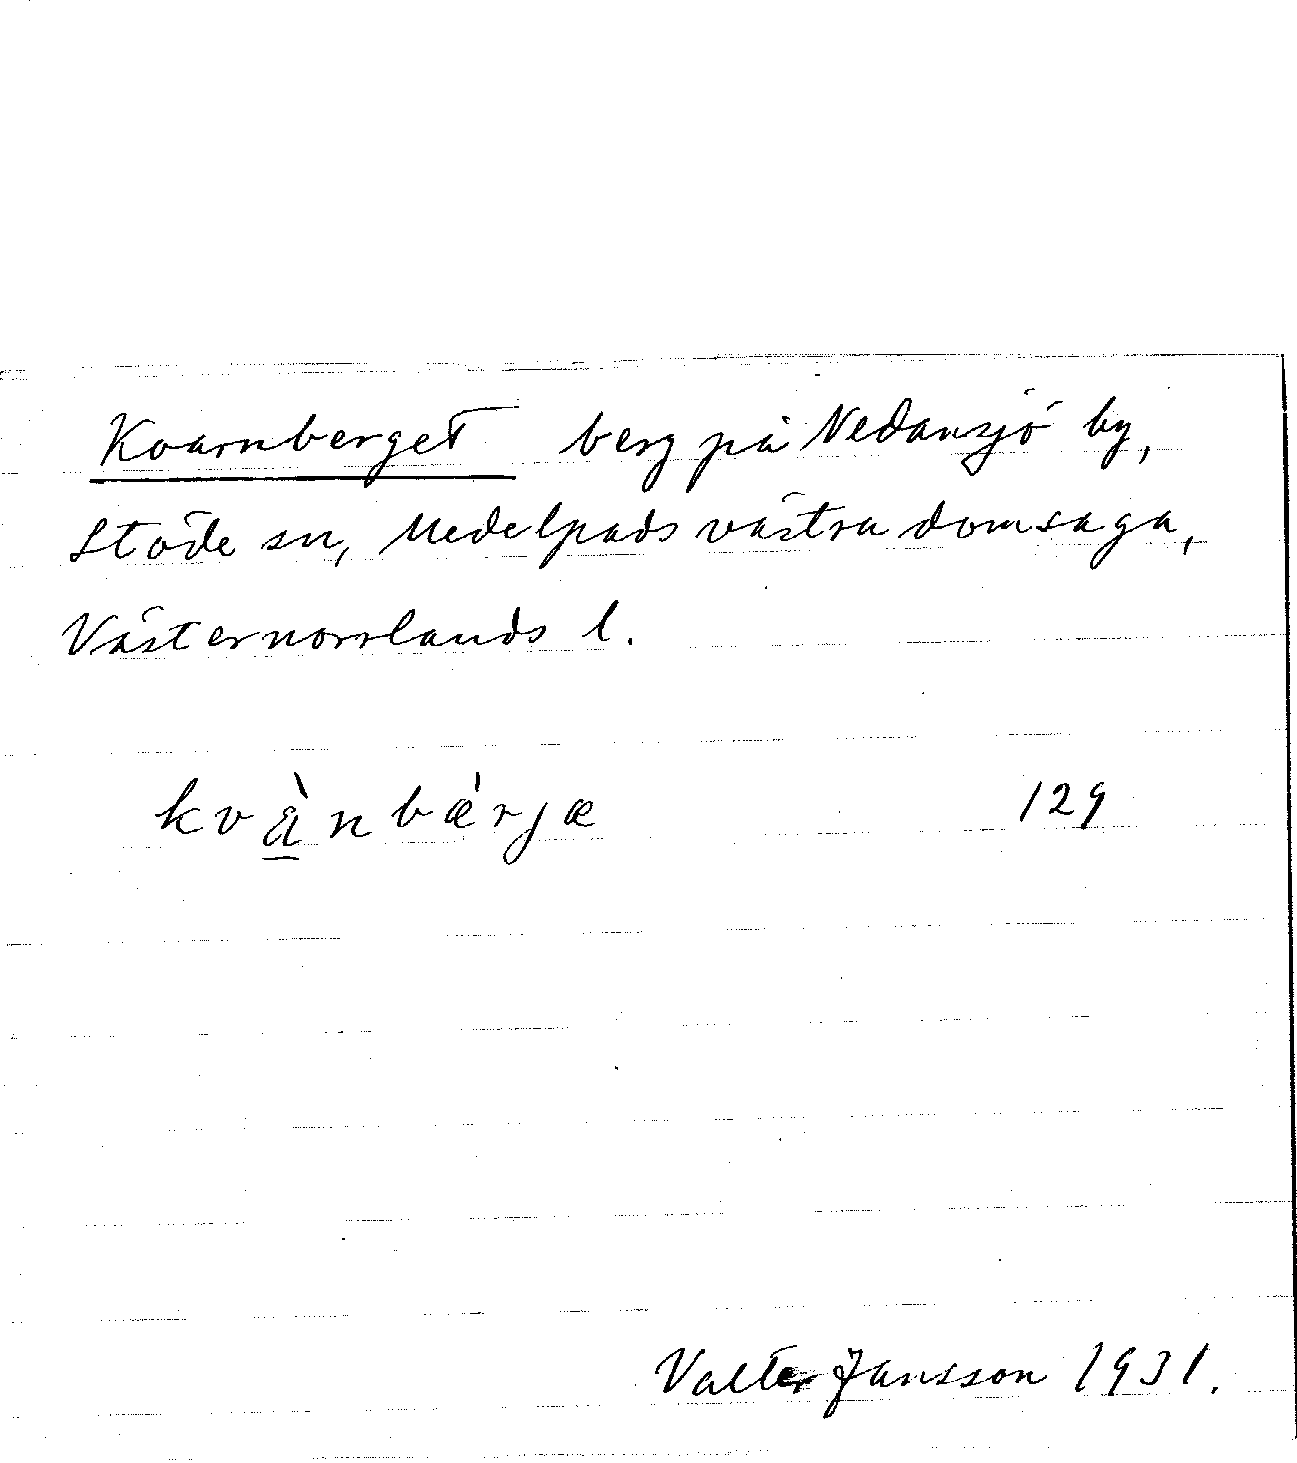 Kvarnberget berg på Nedansjö by,
Stöde sn, Medelpads västra domsaga,
Västernorrlands l.
kvànbǽrjæ 129
Valter Jansson 1931.